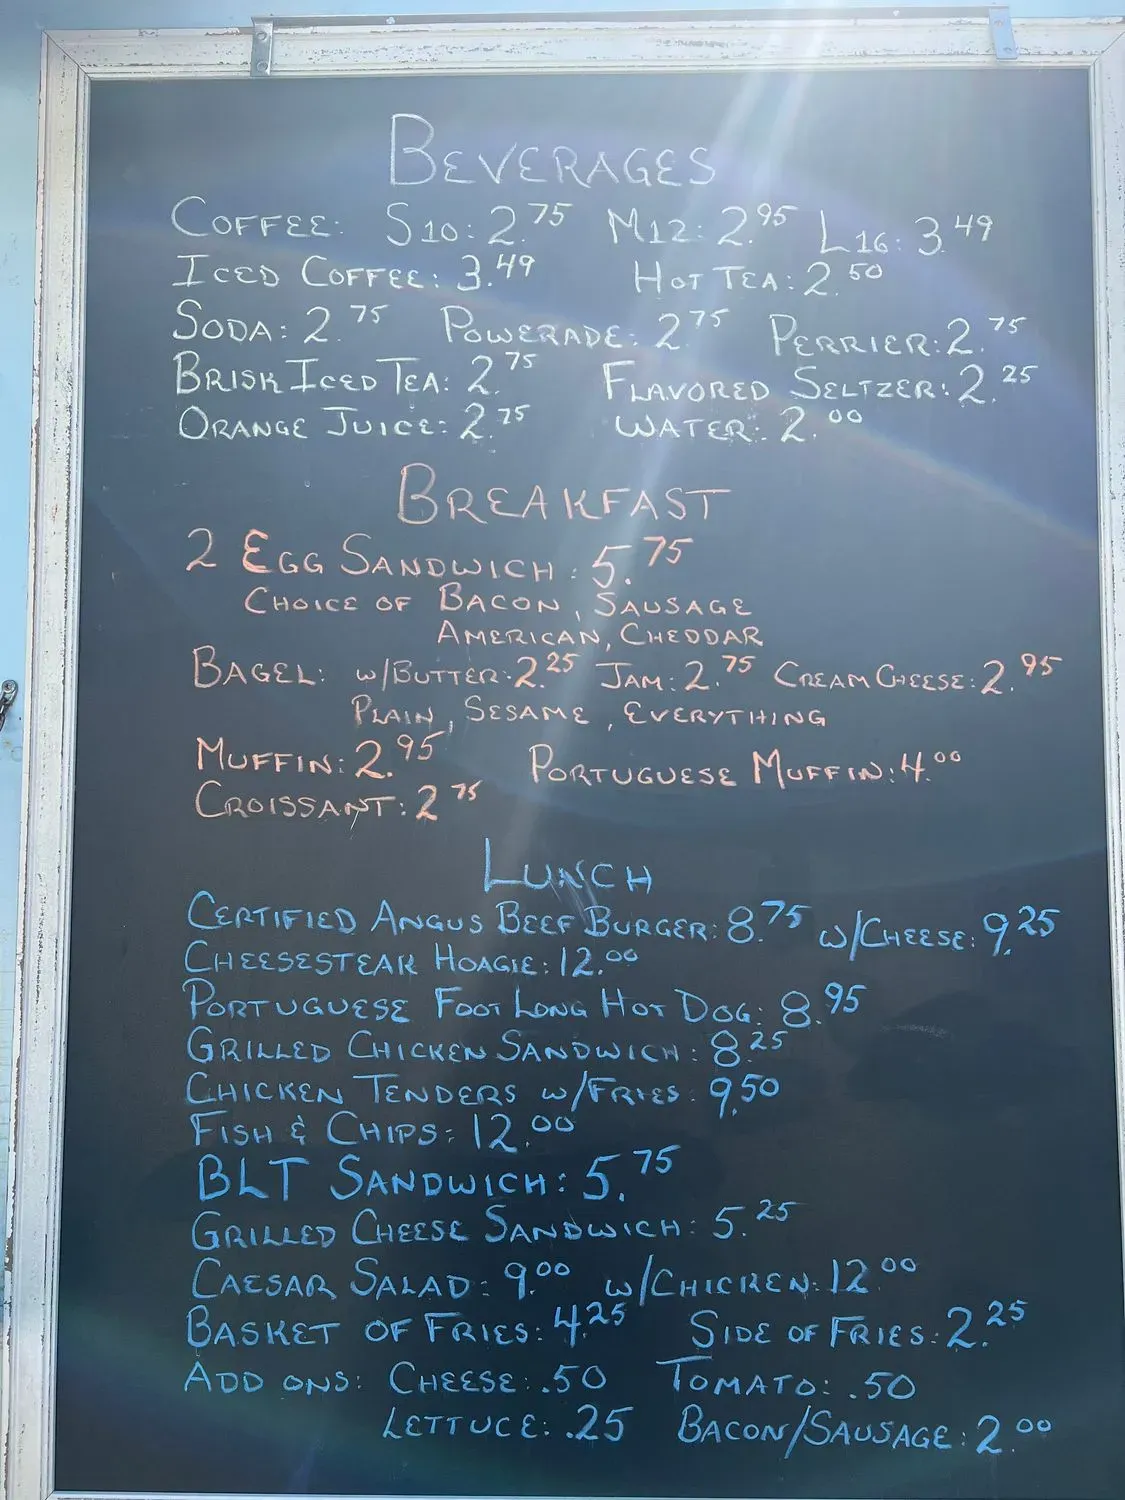 BEVERAGES
COFFEE: S10: 2.75 M12: 2.95 L16: 3.49
ICED COFFEE: 3.49 HOT TEA: 2.50
SODA: 2.75 POWERADE: 2.75 PERRIER: 2.75
BRISK ICED TEA: 2.75 FLAVORED SELTZER: 2.25
ORANGE JUICE: 2.75 WATER: 2.00
BREAKFAST
2 EGG SANDWICH: 5.75
CHOICE OF BACON, SAUSAGE
AMERICAN, CHEDDAR
BAGEL: W/BUTTER: 2.25 JAM: 2.75 CREAM CHEESE: 2.95
PLAIN, SESAME, EVERYTHING
MUFFIN: 2.95 PORTUGUESE MUFFIN: 4.00
CROISSANT: 2.75
LUNCH
CERTIFIED ANGUS BEEF BURGER: 8.75 W/CHEESE: 9.25
CHEESESTEAK HOAGIE: 12.00
PORTUGUESE FOOT LONG HOT DOG: 8.95
GRILLED CHICKEN SANDWICH: 8.25
CHICKEN TENDERS W/FRIES: 9.50
FISH & CHIPS: 12.00
BLT SANDWICH: 5.75
GRILLED CHEESE SANDWICH: 5.25
CAESAR SALAD: 9.00 W/CHICKEN: 12.00
BASKET OF FRIES: 4.25 SIDE OF FRIES: 2.25
ADD ONS: CHEESE: .50 TOMATO: .50
LETTUCE: .25 BACON/SAUSAGE: 2.00